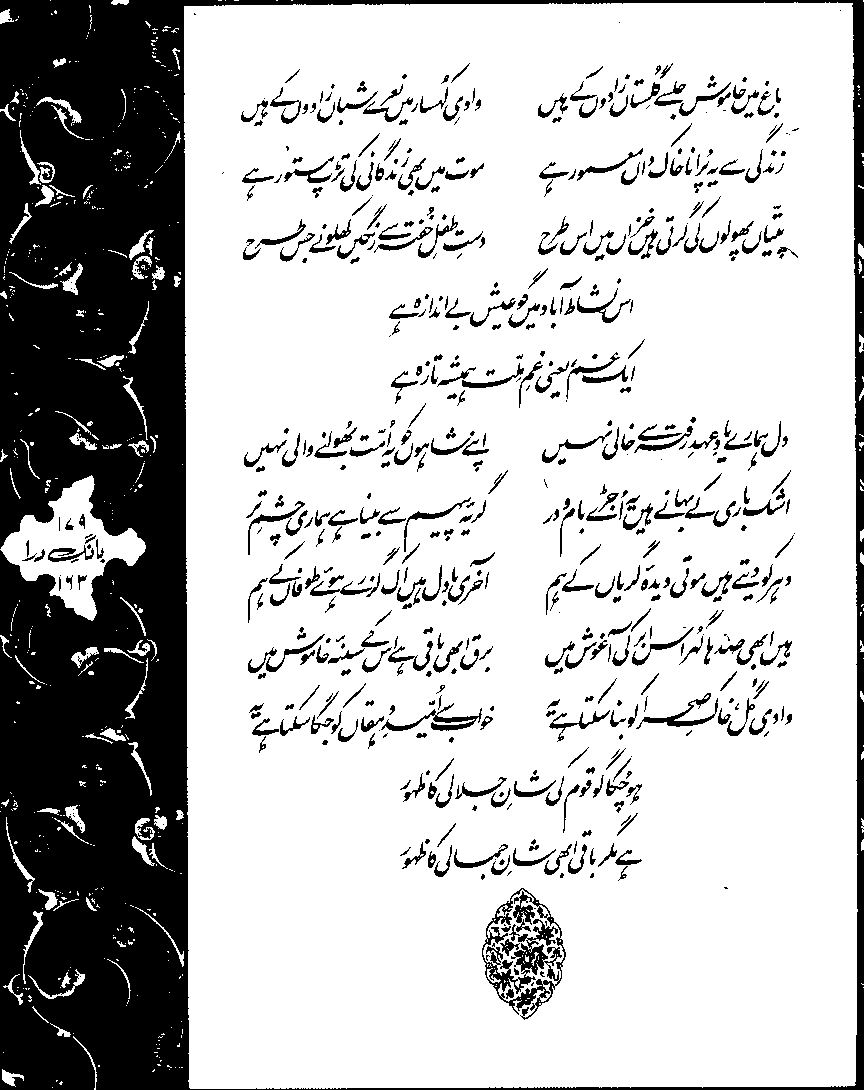 باغ میں خاموش جلسے گلستاں زادوں کے ہیں وادیِ کُہسار میں نعرے شباں زادوں کے ہیں
زندگی سے یہ پُرانا خاک داں معمور ہے موت میں بھی زندگانی کی تڑپ مستور ہے
پتّیاں پھولوں کی گرتی ہیں خزاں میں اس طرح دستِ طفلِ خُفتہ سے رنگیں کھلونے جس طرح
اس نشاط آباد میں گو عیش بے اندازہ ہے
ایک غم یعنی غمِ ملّت ہمیشہ تازہ ہے
دل ہمارے یادِ عہدِ رفتہ سے خالی نہیں اپنے شاہوں کو یہ اُمّت بھُولنے والی نہیں
اشک باری کے بہانے ہیں یہ اُجڑے بام و در گریۂ پیہم سے بینا ہے ہماری چشمِ تر
دہر کو دیتے ہیں موتی دیدۂ گریاں کے ہم آخری بادل ہیں اک گزرے ہوئے طوفاں کے ہم
ہیں ابھی صدہا گُہر اس ابر کی آغوش میں برق ابھی باقی ہے اس کے سینۂ خاموش میں
وادیِ گُل، خاکِ صحرا کو بنا سکتا ہے یہ خواب سے اُمّیدِ دہقاں کو جگا سکتا ہے یہ
ہو چُکا گو قوم کی شانِ جلالی کا ظہور
ہے مگر باقی ابھی شانِ جمالی کا ظہور
۱۷۹
بانگِ درا
۱۶۳